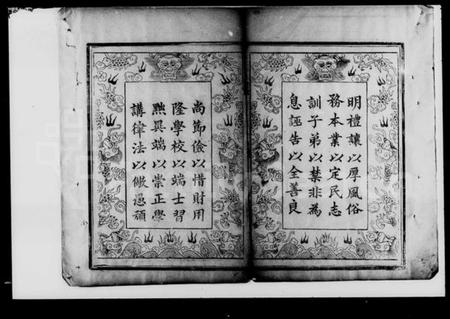 明禮讓以厚風俗
務本業以定民志
訓子弟以禁非為
息誣告以全善良
尚節儉以惜財用
隆學校以端士習
黜異端以崇正學
講律法以儆愚頑